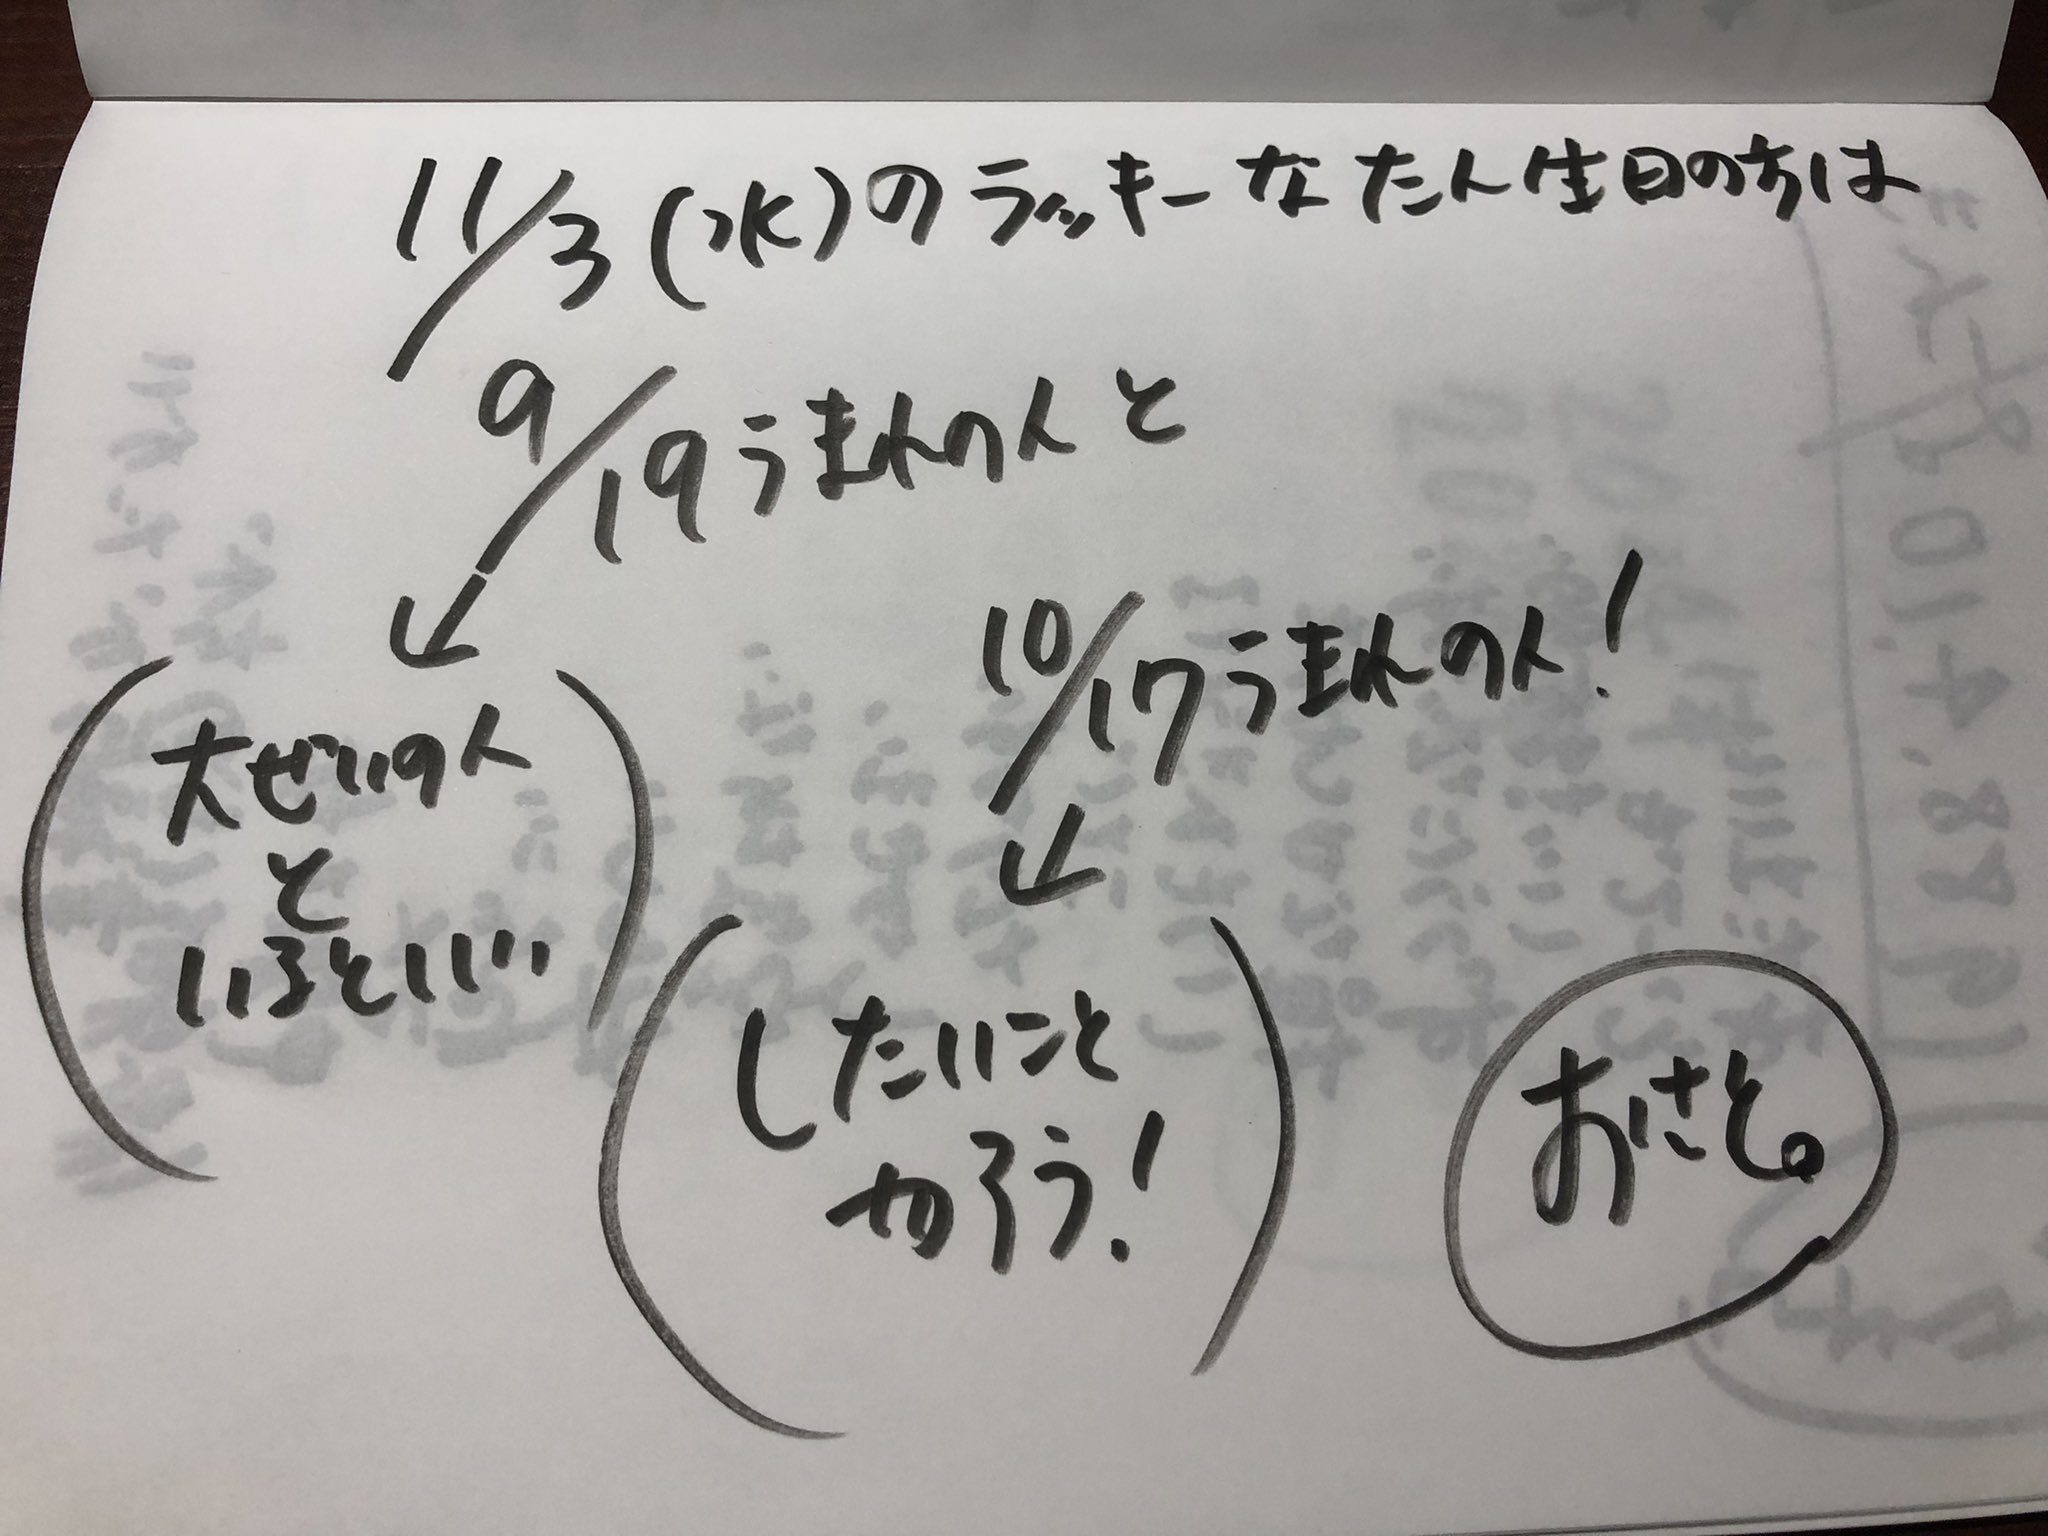 11/3(水)のラッキーなたん生日の方は
9/19うまれの人と
10/17うまれの人!
大ぜいの人
と
いるといい
したいこと
やろう!
おさと。